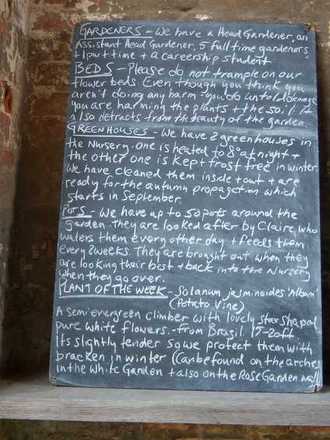 GARDENERS - We have a Head Gardener, an
Assistant Head Gardener, 5 full time gardeners
+ 1 part time + a careership student
BEDS - Please do not trample on our
flower beds. Even though you think you
aren't doing any harm - you do untold damage
you are harming the plants + the soil. It
also detracts from the beauty of the garden
GREENHOUSES - We have 2 greenhouses in
the Nursery. one is heated to 8° at night +
the other one is kept frost free in winter.
We have cleaned them inside + out + are
ready for the autumn propagation which
starts in September.
POTS - We have up to 50 pots around the
Garden. They are looked after by Claire, who
waters them every other day + feeds them
every 2 weeks. They are brought out when they
are looking their best + back into the Nursery
when they go over.
PLANT OF THE WEEK - Solanum jasminoides 'Album'
(Potato Vine)
A semi evergreen climber with lovely star shaped
pure white flowers. - from Brasil 12-20ft
Its slightly tender so we protect them with
bracken in winter (can be found on the arches
in the White Garden + also on the Rose Garden wall